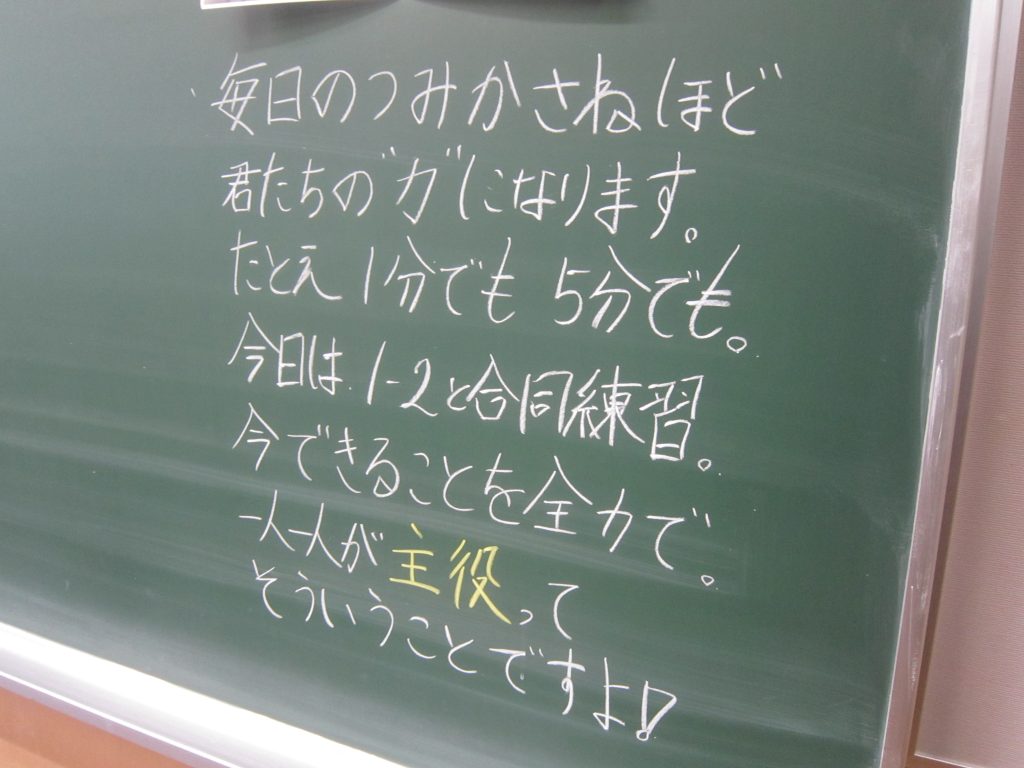 毎日のつみかさねほど
君たちの"力"になります。
たとえ1分でも 5分でも。
今日は 1-2と合同練習。
今できることを全力で。
一人一人が主役って
そういうことですよ!